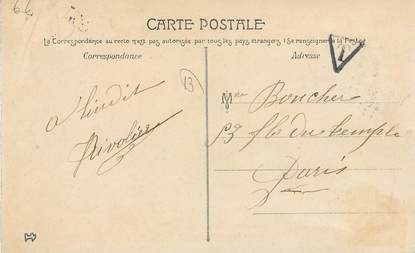 66
CARTE POSTALE
La Correspondance au recto n'est pas autorisée par tous les pays étrangers (Se renseigner à la Poste)
Correspondance
Adresse
13
à lundi
Mme Boucher
fb du temple
Paris